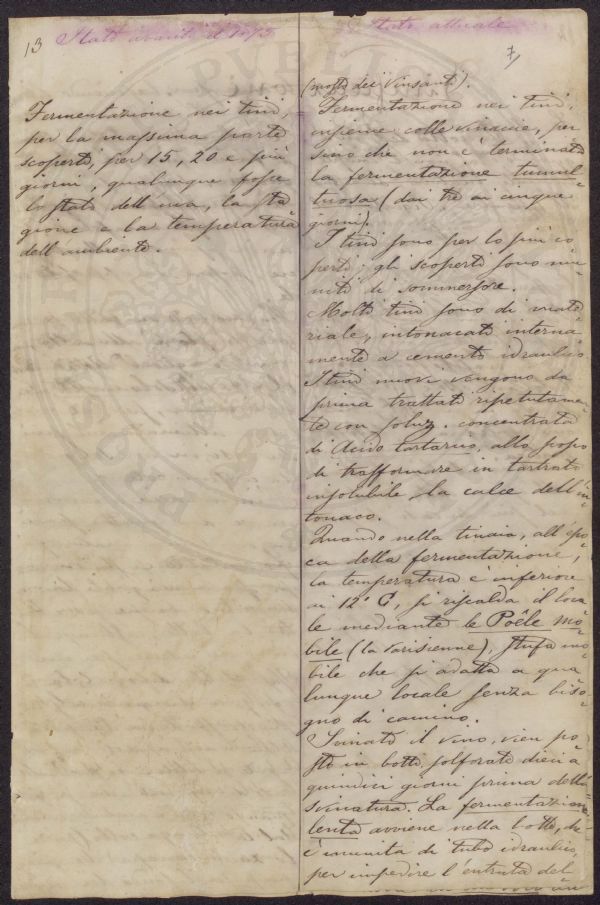 13
Stato avanti il 1873
Fermentazione nei tini,
per la massima parte
scoperti, per 15, 20 e più
giorni, qualunque fosse
lo stato dell'uva, la sta
gione e la temperatura
dell'ambiente.
Stato attuale
7
(mosto dei Vinsanti).
Fermentazione nei tini,
insieme colle vinacce, per
sino che non è terminata
la fermentazione tumul
tuosa (dai tre ai cinque
giorni).
I tini sono per lo più co
perti; gli scoperti sono mu
niti di sommersore.
Molti tini sono di mate
riale, intonacati interna
mente a cemento idraulico
I tini nuovi vengono da
prima trattati ripetutamen
te con soluz. concentrata
di Acido tartarico, allo scopo
di trasformare in tartrato
insolubile la calce dell'in
tonaco.
Quando nella tinaia, all'epo
ca della fermentazione,
la temperatura è inferiore
ai 12° C, si riscalda il loca
le mediante le Poêle mo
bile (la Parisienne), stufa mo
bile che si adatta a qua
lunque locale senza biso
gno di camino.
Svinato il vino, vien po
sto in botti solforate dieci a
quindici giorni prima della
svinatura. La fermentazione
lenta avviene nella botte, che
è munita di tubo idraulico,
per impedire l'entrata del